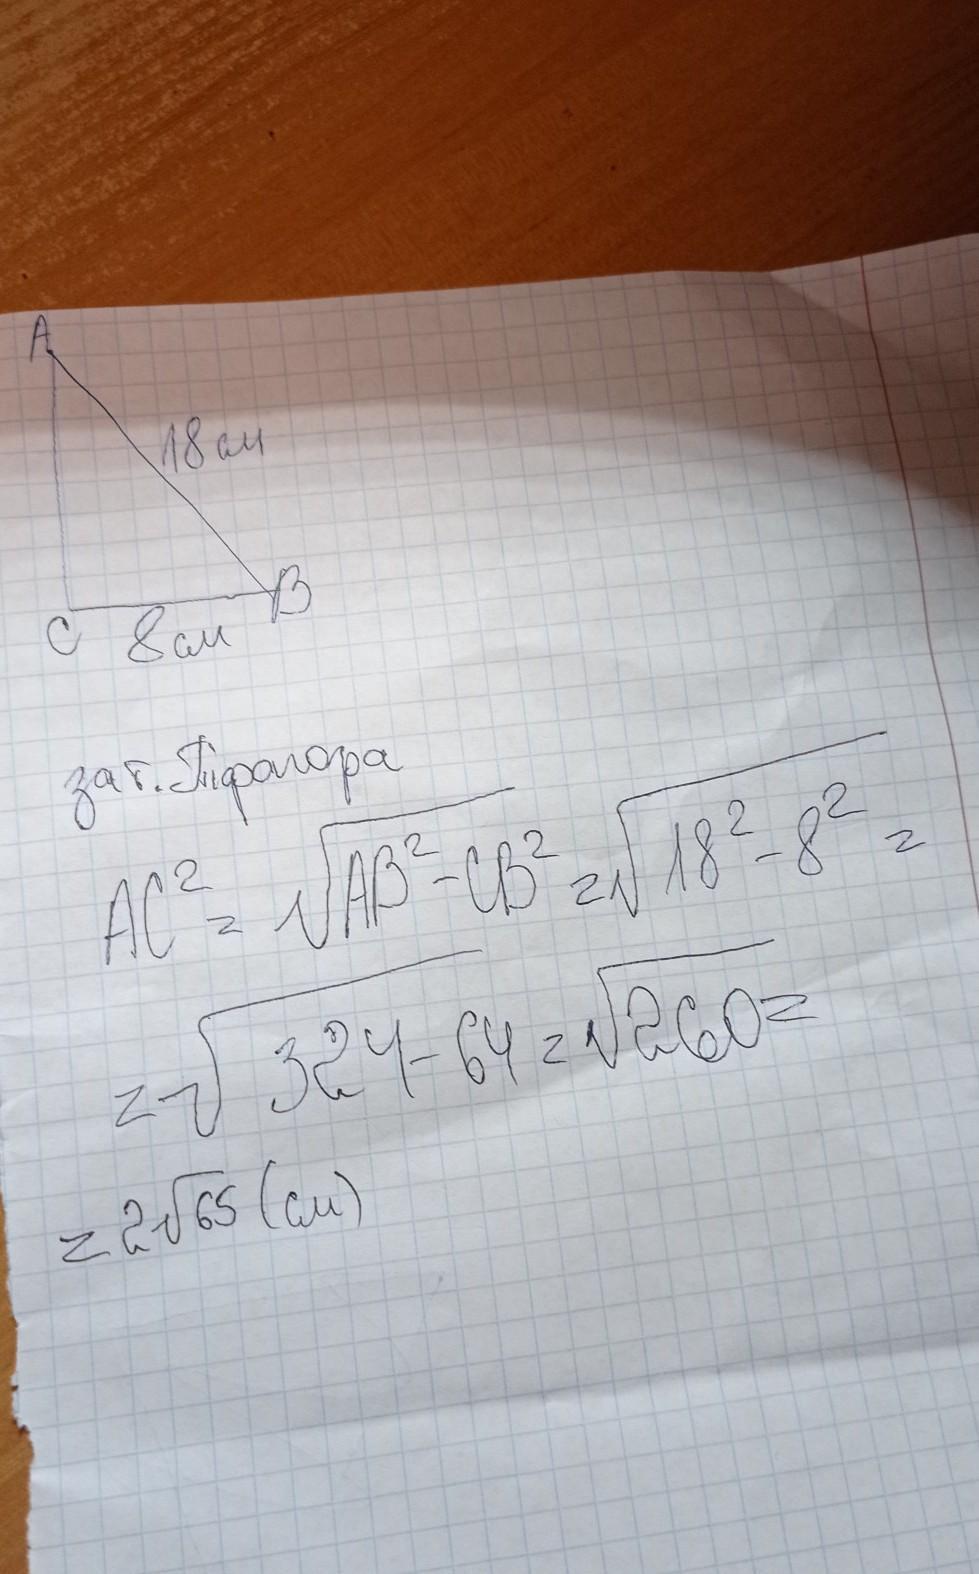 A
18 см
B
C
8 см
за т. Піфагора
AC² = √AB² - CB² = √18² - 8² =
= √324 - 64 = √260 =
= 2√65 (см)